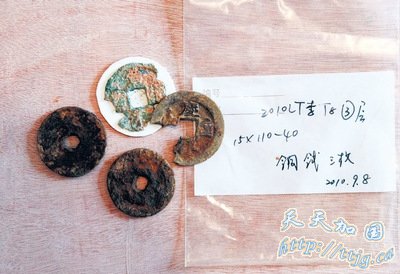 2010LT李T8③层
15×110-40
铜钱三枚
2010.9.8
天天加国
http://ttjg.ca